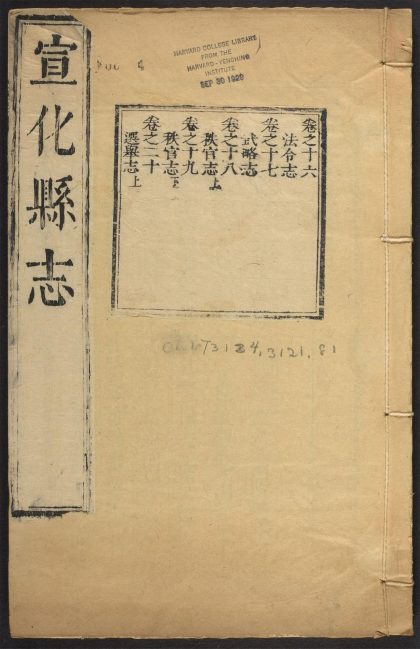 宣化縣志
HARVARD COLLEGE LIBRARY
FROM THE
HARVARD-YENCHING
INSTITUTE
SEP 30 1929
卷之十六
法令志
卷之十七
武略志
卷之十八
秩官志上
卷之十九
秩官志下
卷之二十
選舉志上
3134,3121.81